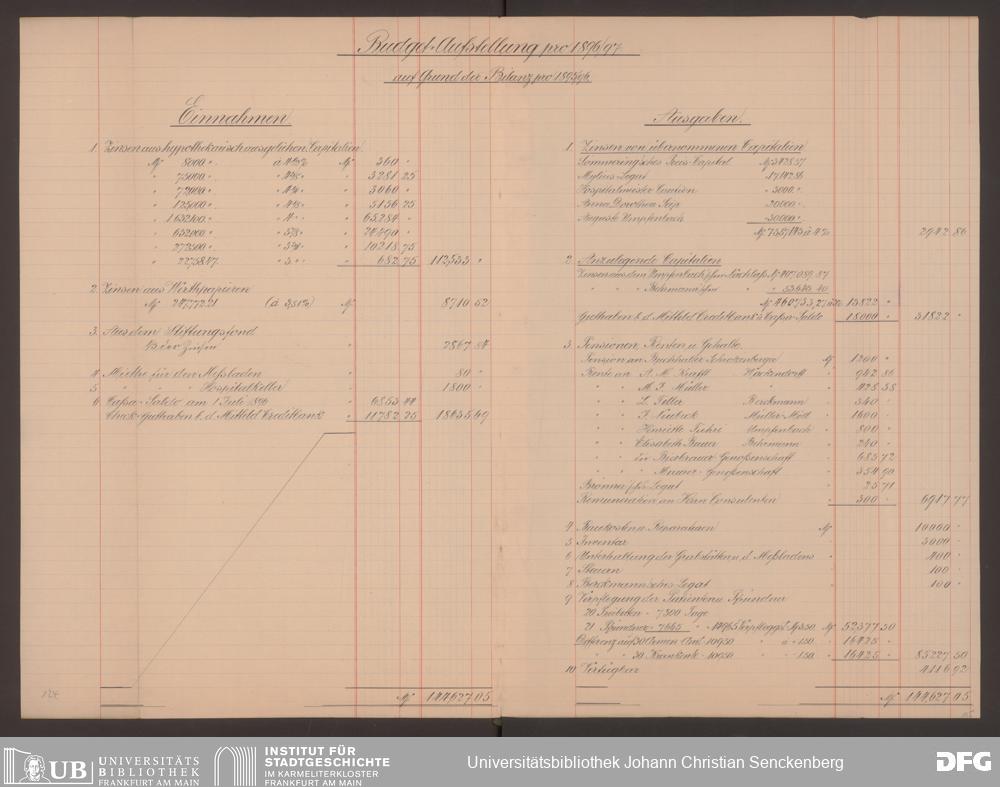 Budget-Aufstellung pro 1896/97.
auf Grund der Bilanz pro 1895/96.
Einnahmen
1. Zinsen aus hypothekarisch ausgeliehen. Capitalien
M 8000 " à 4½% M 360 "
" 75000 " " 4⅜ " " 3281 25
" 72000 " " 4¼ " " 3060 "
" 125000 " " 4⅛ " " 5156 25
" 1632100 " " 4 " " " 65284 "
" 652000 " " 3¾ " " 24490 "
" 272500 " " 3¾ " " 10218 75
" 22758.47 " 3 " " " 682 75 112533 "
2. Zinsen aus Werthpapieren
M (à 3½%) M 8710 52
3. Aus dem Stiftungsfond
der Zinsen " 2867 84
4 Miethe für den Meßladen " 80 "
5 " " " Hospitalkeller " 1800 "
6 Cassa-Saldo am 1 Juli 1896 " 6853 44
Check-Guthaben b. d. Mitteld. Creditbank " 11782 25 18635 69
M 144627 05
Ausgaben.
1. Zinsen von übernommenen Capitalien
Sömmering'sches Preis-Capital M 3428 57
Mylius Legat " 17142 86
Hospitalmeister Caution " 3000 "
Anna Dorothea " 20000 "
Auguste Umpfenbach " 30000 "
M 73571 43 à 4% 2942 86
2 Anzulegende Capitalien
Zinsen aus dem Umpfenbach'schen Nachlaß M 407089.87
" " Behrmann'schen " " 53643 40
M 460733,27 à 3% 13822 "
Guthaben b. d. Mitteld. Creditbank u. Cassa-Saldo " 18000 " 31822 "
3 Pensionen, Renten u. Gehalte.
Pension an Buchhalter Schotzenberger M 1200 "
Rente an A. M. Krafft Hackendorff " 942 86
" " M. F. Müller " 428 58
" " L. Feller Berckmann " 340 "
" " Müller-Möll " 1600 "
" " Henriette Umpfenbach " 800 "
" " Elisabeth Bauer Behrmann " 240 "
" " die Bierbrauer Genoßenschaft " 685 72
" " " Maurer-Genoßenschaft " 354 90
Brönner'sches Legat " 25 71
Remuneration an Herrn Consulenten " 300 " 6917 77
4 Baukosten u. Reparaturen M 10000 "
5 Inventar 3000 "
6 Unterhaltung der Grabstätten u. d. Meßladens " 400 "
7 Steuern " 100 "
8 Berckmann'sches Legat " 100 "
9 Verpflegung der Patienten u. Pfründner
20 Freibetten = 7300 Tage
21 Pfründner = 7665 " = 14965 Verpflegg. M 3.50 M 52377 50
Differenz auf 30 Armen-Amt 10950 " à " 1.50 " 16425 "
" " 30 Krankenk. 10950 " " " 1.50 " 16425 " 85227 50
10 Verfügbar 4116 92
M 144627 05
124
125
UB UNIVERSITÄTS
BIBLIOTHEK
FRANKFURT AM MAIN
INSTITUT FÜR
STADTGESCHICHTE
IM KARMELITERKLOSTER
FRANKFURT AM MAIN
Universitätsbibliothek Johann Christian Senckenberg
DFG